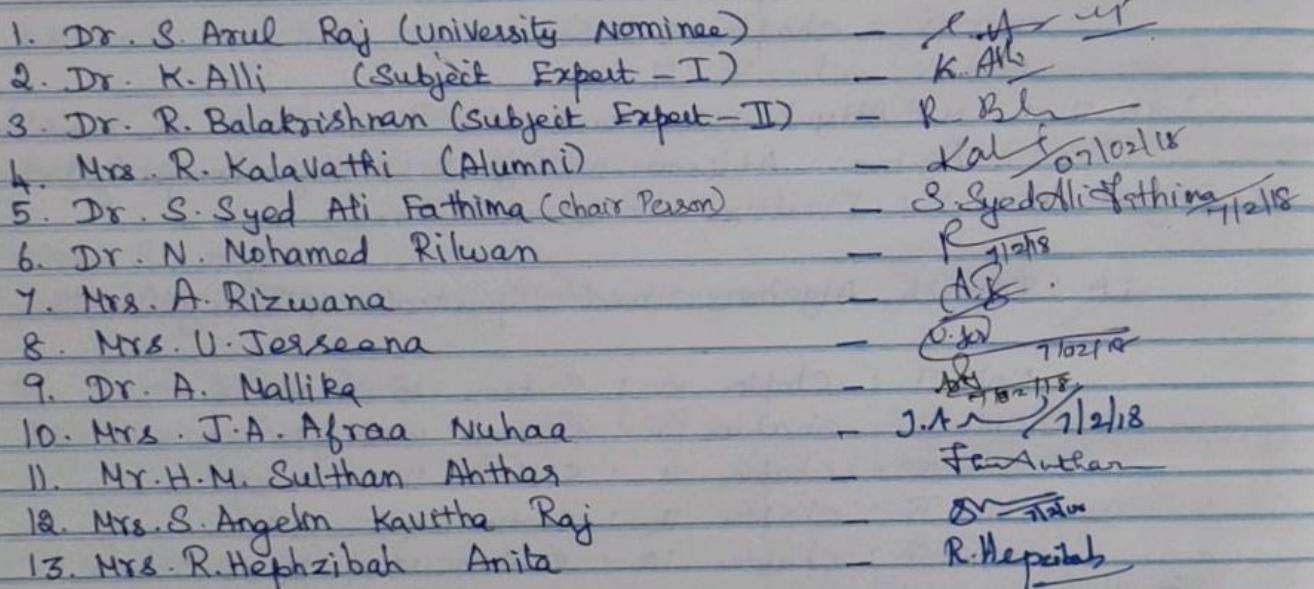 1. Dr. S. Arul Raj (University Nominee) -
2. Dr. K. Alli (Subject Expert - I) - K. Alli
3. Dr. R. Balakrishnan (Subject Expert - II) - R Bl
4. Mrs. R. Kalavathi (Alumni) - Kal 07/02/18
5. Dr. S. Syed Ali Fathima (Chair Person) - S. Syed Ali Fathima 7/2/18
6. Dr. N. Nohamed Rilwan - 7/2/18
7. Mrs. A. Rizwana -
8. Mrs. U. Jerseena - U. Jer 7/02/18
9. Dr. A. Mallika - 7/02/18
10. Mrs. J.A. Afraa Nuhaa - J.A 7/2/18
11. Mr. H.M. Sulthan Ahthar -
12. Mrs. S. Angelin Kavitha Raj -
13. Mrs. R. Hephzibah Anita - R. Hepzibah